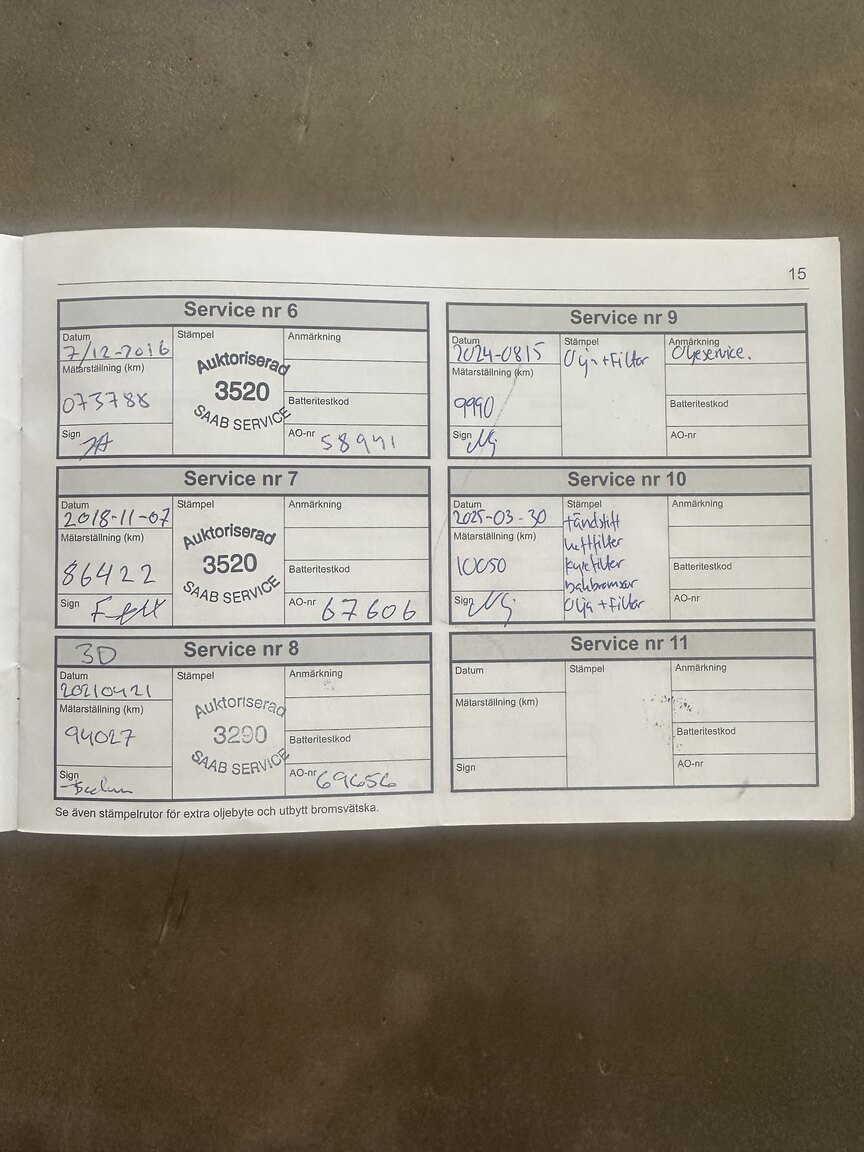 15
Service nr 6
Datum
7/12-2016
Stämpel
Auktoriserad
3520
SAAB SERVICE
Anmärkning
Mätarställning (km)
073788
Batteritestkod
Sign
AO-nr 58941
Service nr 7
Datum
2018-11-07
Stämpel
Auktoriserad
3520
SAAB SERVICE
Anmärkning
Mätarställning (km)
86422
Batteritestkod
Sign
AO-nr 67606
3D Service nr 8
Datum
20210421
Stämpel
Auktoriserad
3290
SAAB SERVICE
Anmärkning
Mätarställning (km)
94027
Batteritestkod
Sign
AO-nr 69656
Se även stämpelrutor för extra oljebyte och utbytt bromsvätska.
Service nr 9
Datum
2024-0815
Stämpel
Olja + Filter
Anmärkning
Oljeservice.
Mätarställning (km)
9990
Batteritestkod
Sign
AO-nr
Service nr 10
Datum
2025-03-30
Stämpel
tändstift
luftfilter
bakbromsar
Olja + Filter
Anmärkning
Mätarställning (km)
10050
Batteritestkod
Sign
AO-nr
Service nr 11
Datum
Stämpel
Anmärkning
Mätarställning (km)
Batteritestkod
Sign
AO-nr